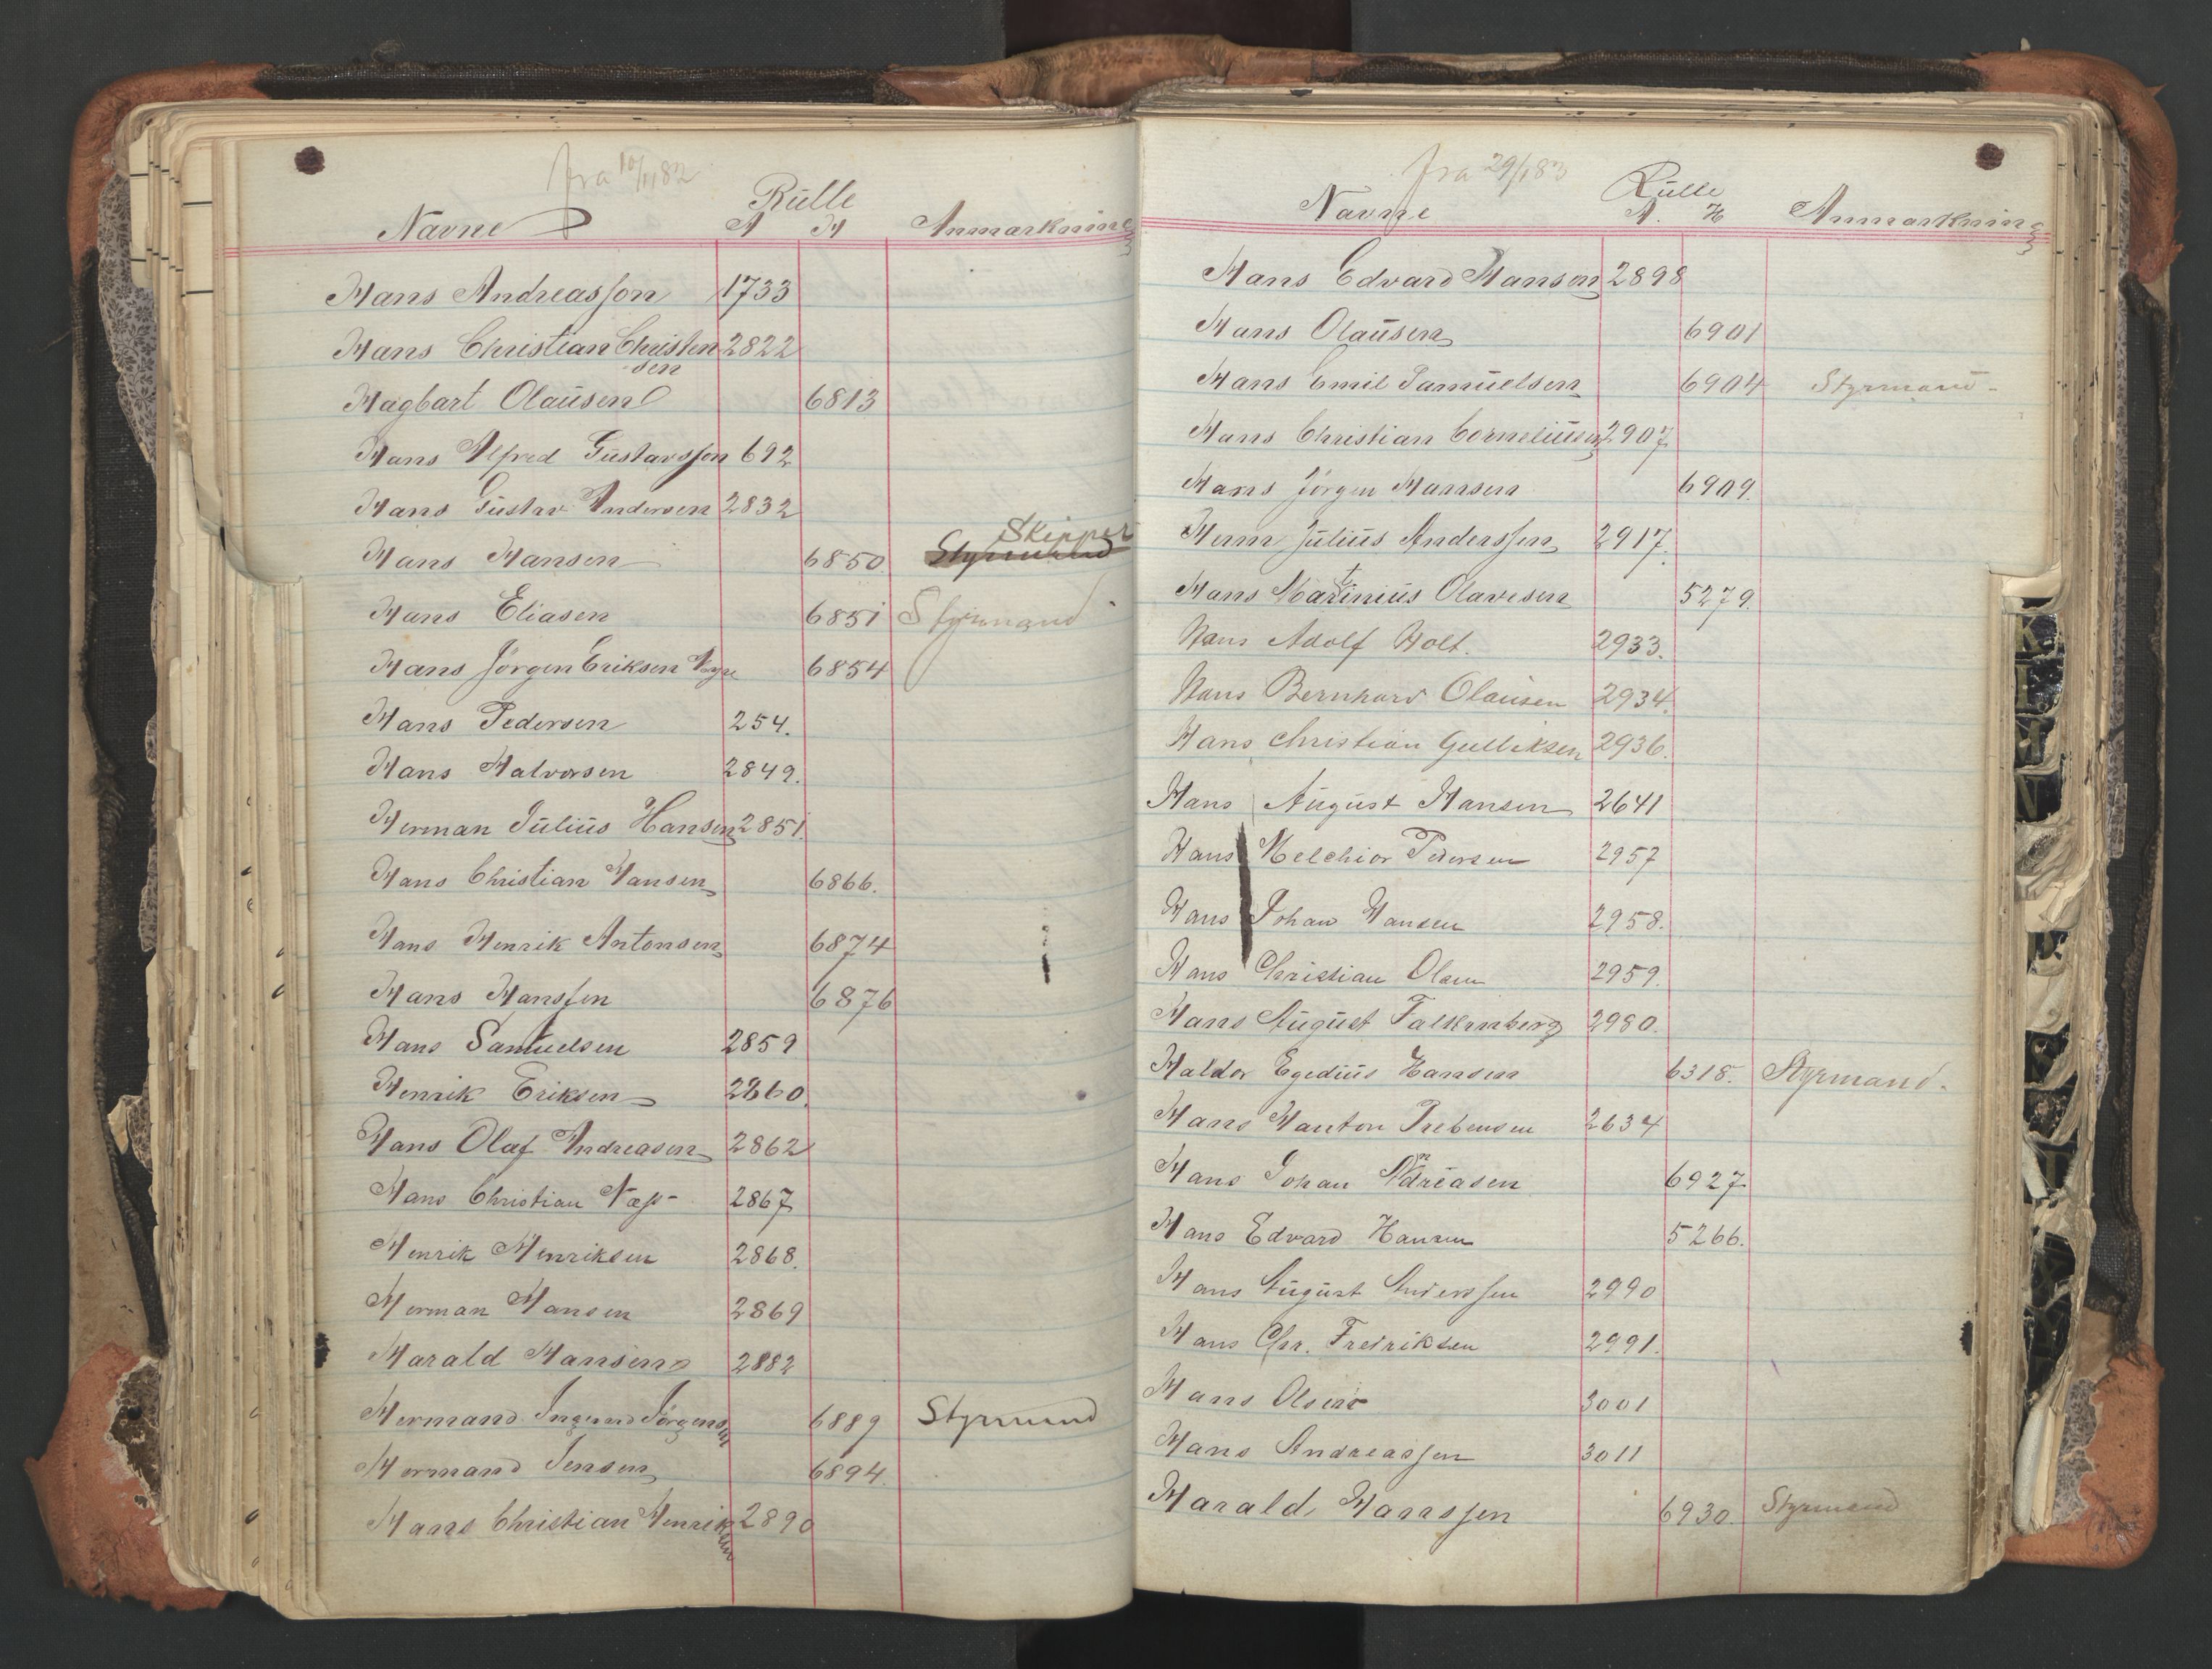 fra 10/11 82
Rulle
Navne A H Anmærkning
Hans Andreassen 1733
Hans Christian Christen 2822
sen
Hagbart Olausen 6813
Hans Alfred Gustavssen 692
Hans Gustav Andersen 2832
Skipper
Hans Hansen 6850 Styrmand
Hans Eliasen 6851 Styrmand
Hans Jörgen Eriksen 6854
Hans Pedersen 254.
Hans Halvorsen 2849.
Herman Julius Hansen 2851.
Hans Christian Hansen 6866.
Hans Henrik Antonsen 6874
Hans Hanssen 6876
Hans Samuelsen 2859
Henrik Eriksen 2860.
Hans Olaf Andreasen 2862
Hans Christian Næss 2867
Henrik Henriksen 2868.
Herman Hansen 2869
Harald Hansen 2882
Hermand Ingvard Jörgensen 6889 Styrmand
Hermand Jensen 6894.
Hans Christian Henriksen 2890
fra 29/1 83
Rulle
Navne A. H Anmærkning
Hans Edvard Hansen 2898
Hans Olausen 6901
Hans Emil Samuelsen 6904 Styrmand -
Hans Christian Corneliusen 2907
Hans Jörgen Hansen 6909.
Herm Julius Anderssen 2917.
Hans Martinius Olavesen 5279.
Hans Adolf Holt. 2933.
Hans Bernhard Olausen 2934.
Hans Christian Gulliksen 2936.
Hans August Hansen 2641
Hans Melchior Pedersen 2957
Hans Johan Hansen 2958.
Hans Christian Olsen 2959.
Hans August Falkenberg 2980.
Haldor Egedius Hansen 6318. Styrmand.
Hans Hanton Prebensen 2634
Hans Johan Andreasen 6927
Hans Edvard Hansen 5266.
Hans August Anderssen 2990
Hans Chr. Fredriksen 2991.
Hans Olsen 3001
Hans Andreassen 3011
Harald Hanssen 6930. Styrmand